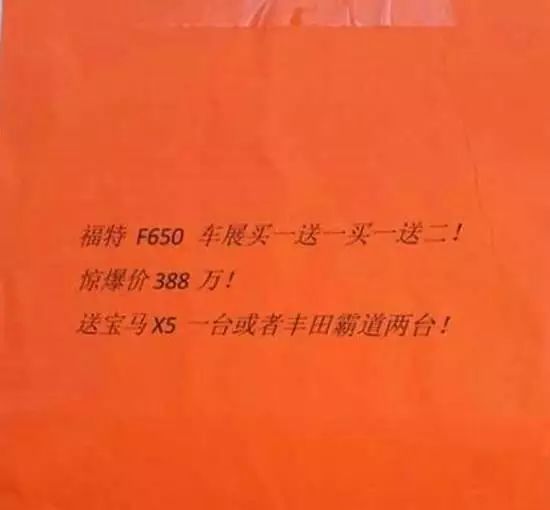 福特 F650 车展买一送一买一送二！
惊爆价388 万！
送宝马X5 一台或者丰田霸道两台！